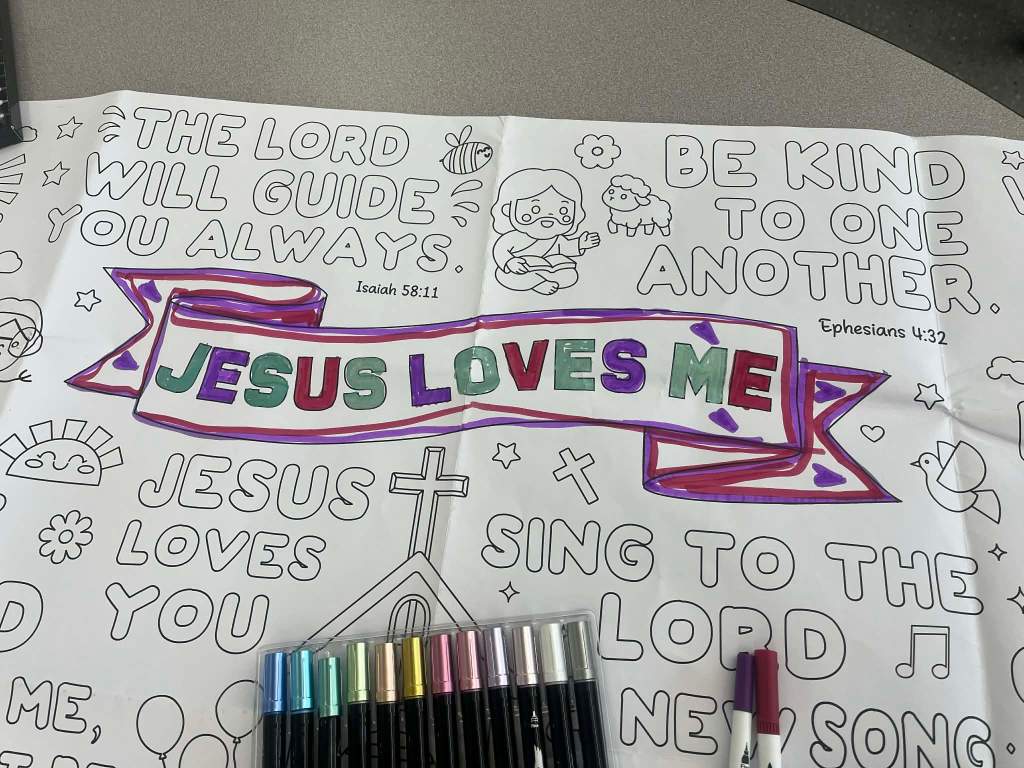 THE LORD
WILL GUIDE
YOU ALWAYS.
Isaiah 58:11
BE KIND
TO ONE
ANOTHER.
Ephesians 4:32
JESUS LOVES ME
JESUS
LOVES
YOU
SING TO THE
LORD
NEW SONG.
ME,